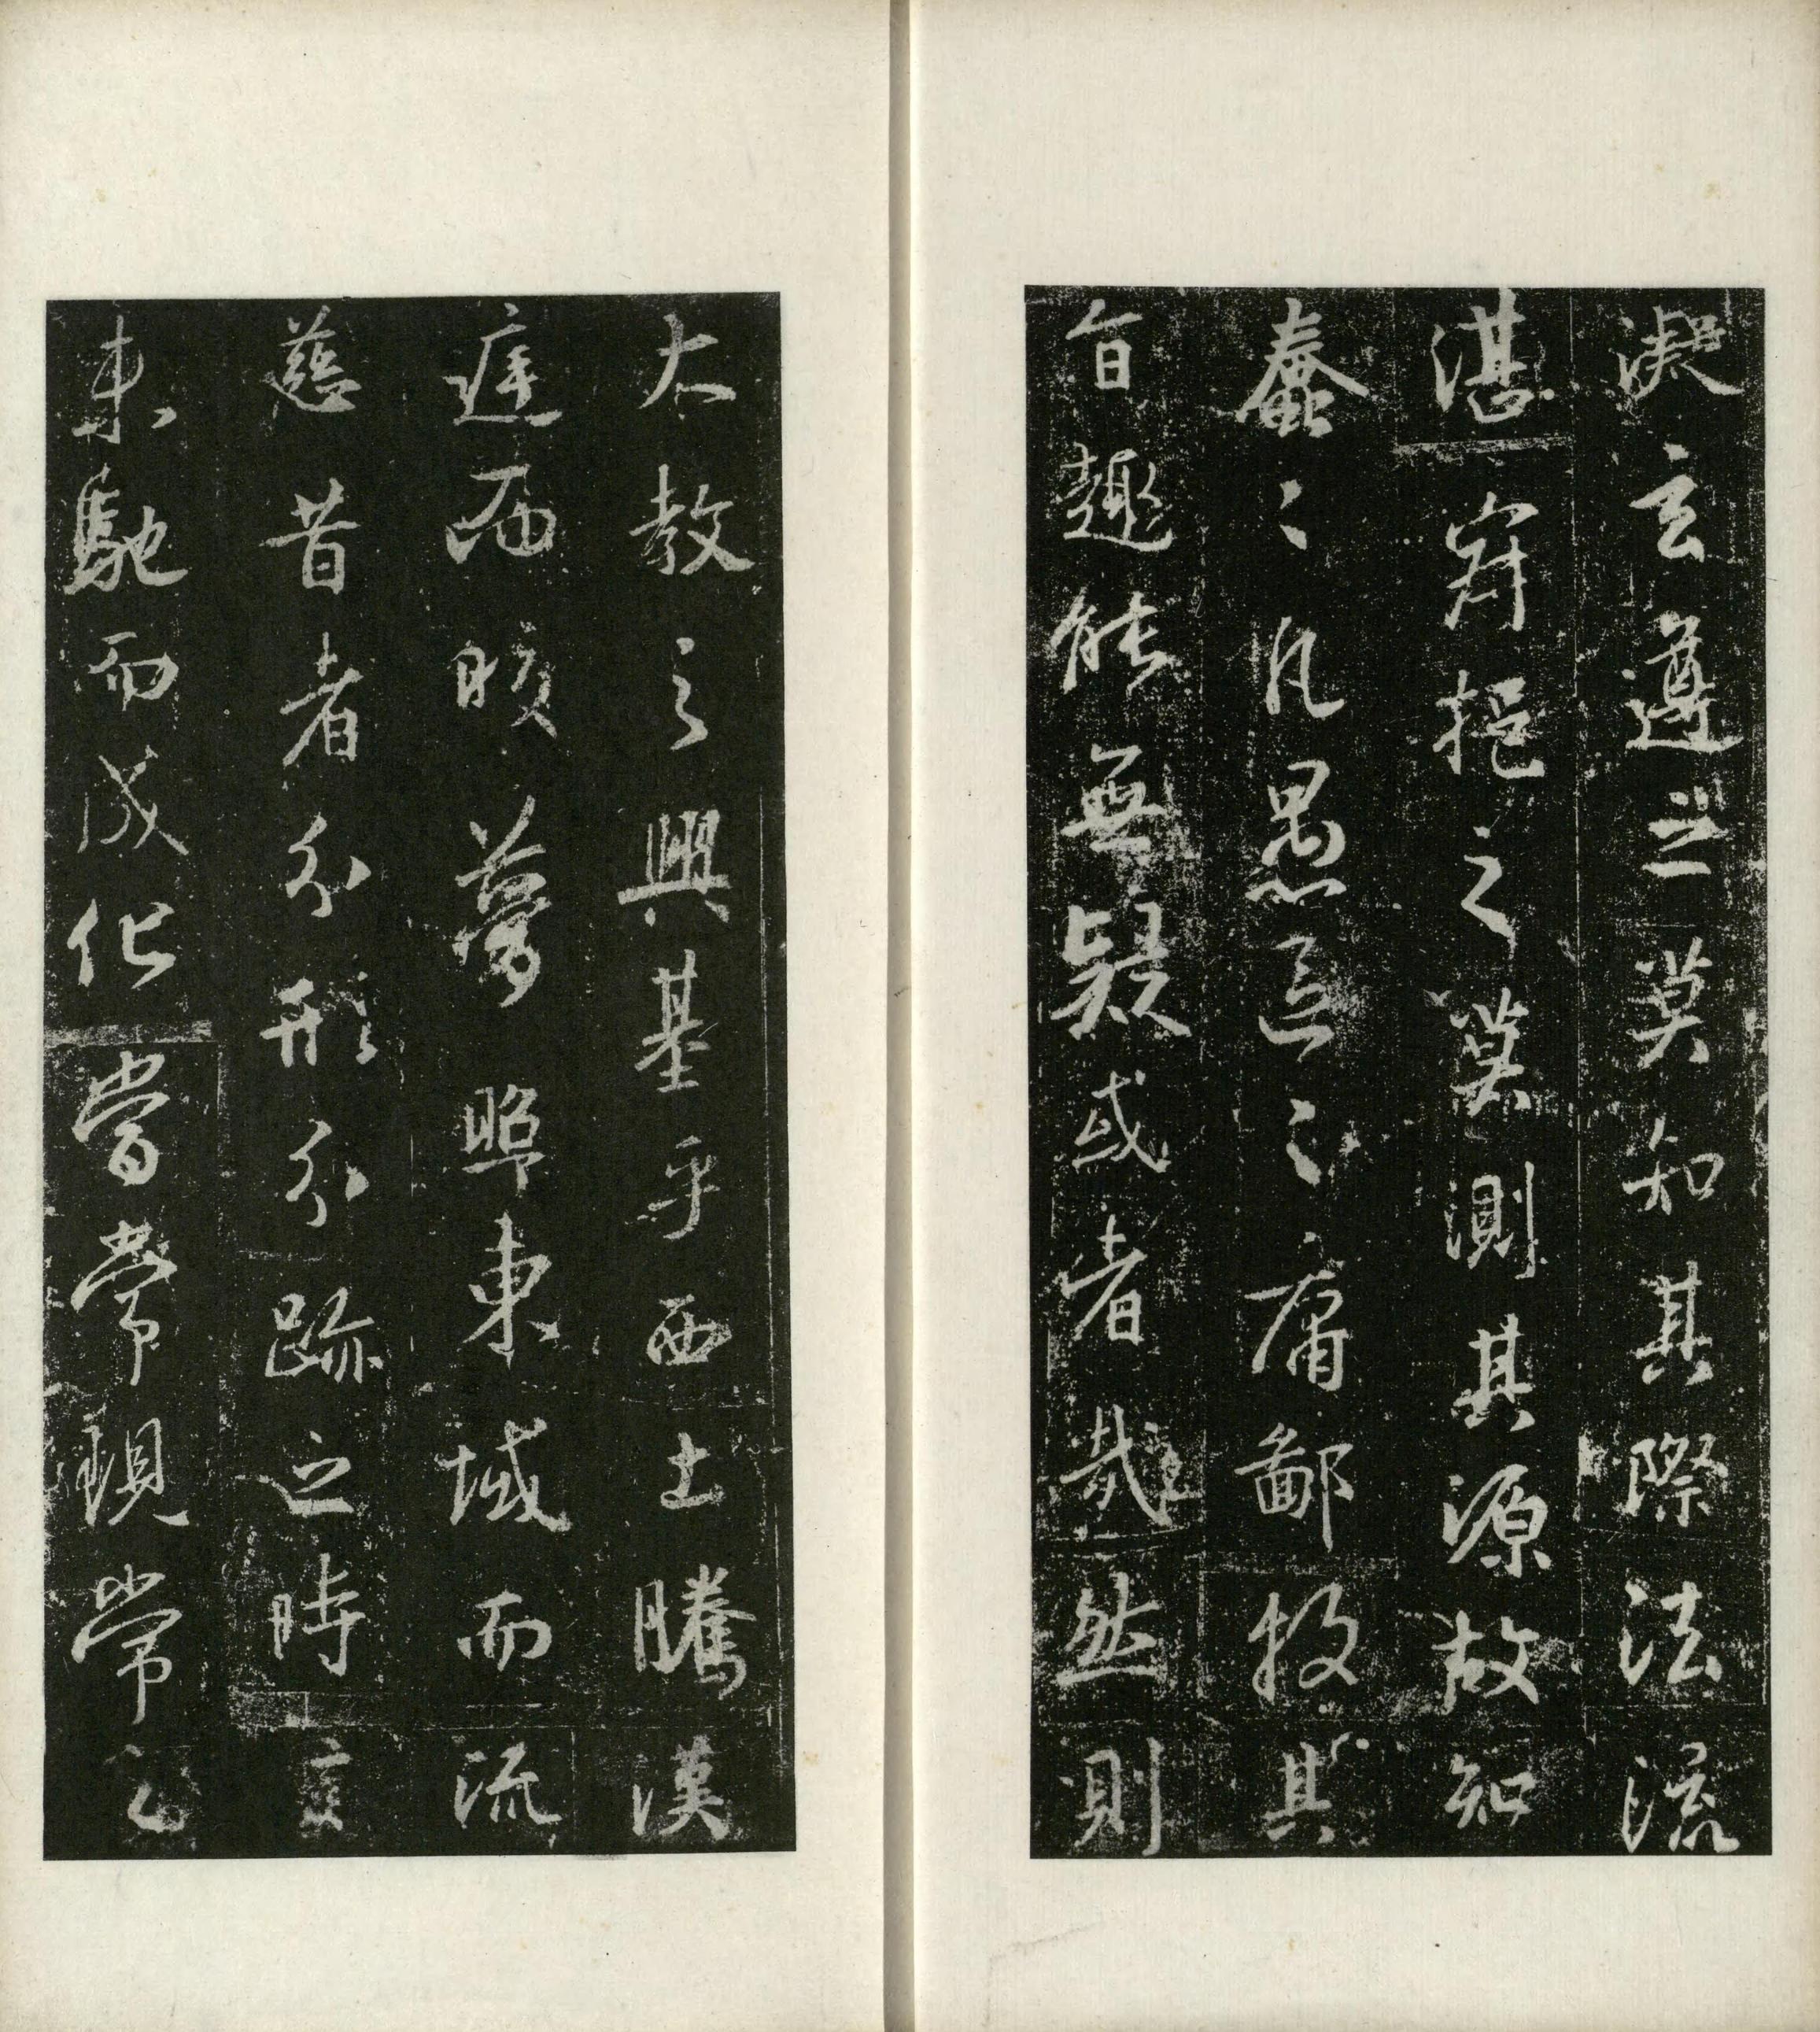 凝玄遵之莫知其際法流
湛寂挹之莫測其源故知
蠢〻凡愚區〻庸鄙投其
旨趣能無疑或者哉然則
大教之興基乎西土騰漢
庭而皎夢照東域而流
慈昔者分形分跡之時言
未馳而成化當常現常之